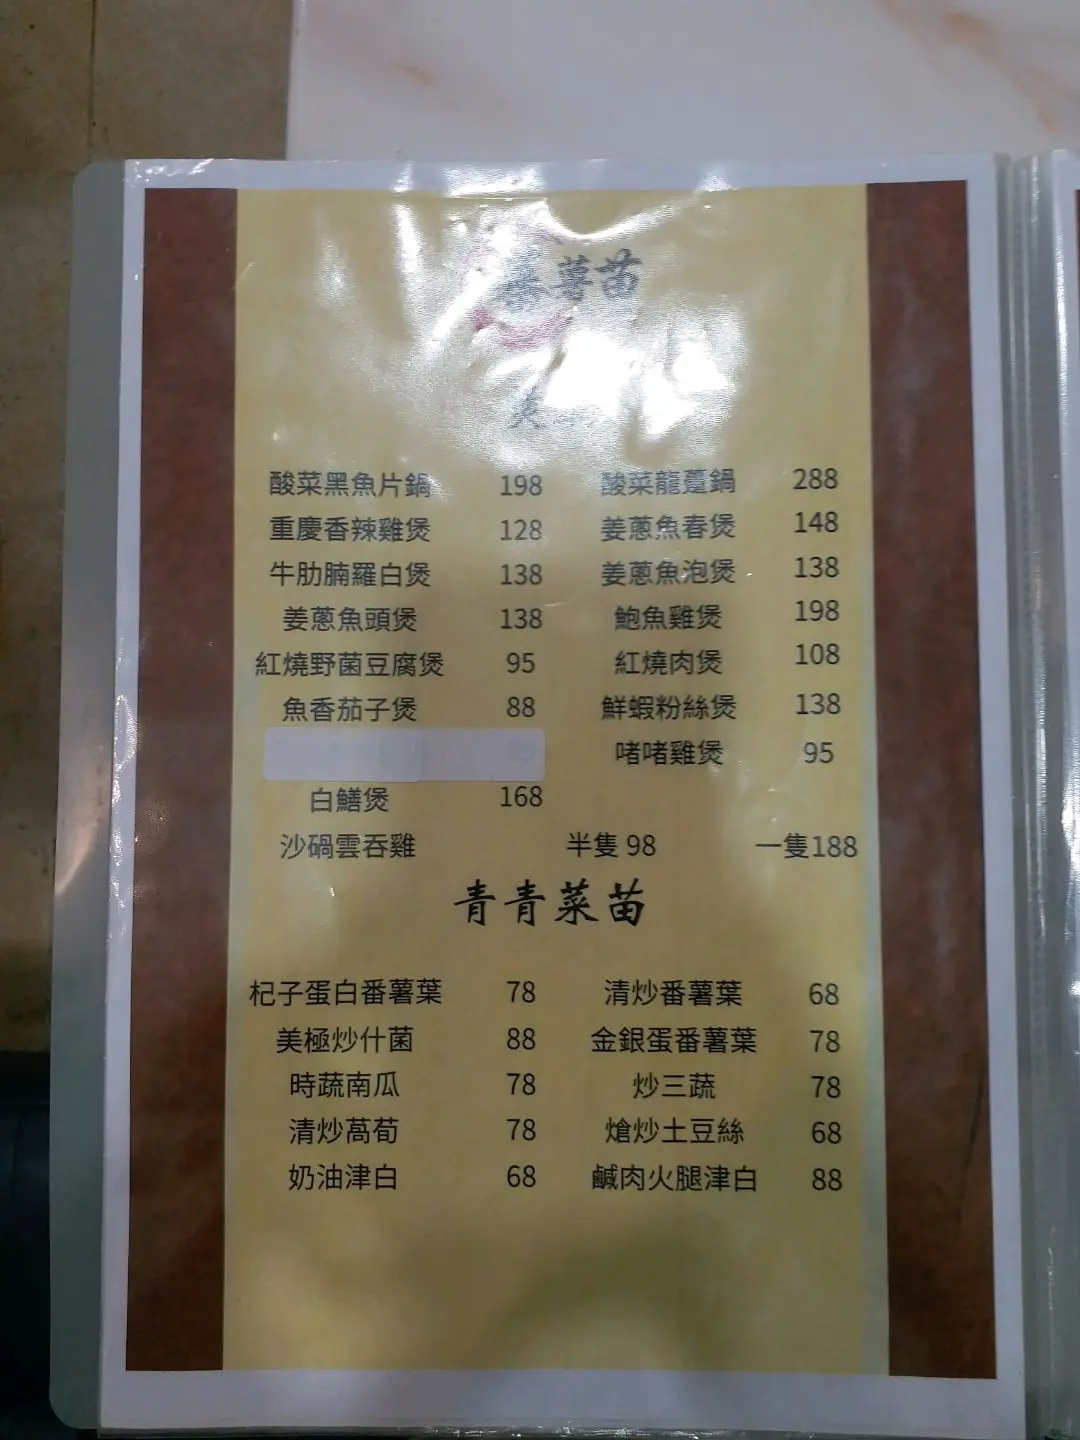 番薯苗
酸菜黑魚片鍋 198 酸菜龍躉鍋 288
重慶香辣雞煲 128 姜蔥魚春煲 148
牛肋腩羅白煲 138 姜蔥魚泡煲 138
姜蔥魚頭煲 138 鮑魚雞煲 198
紅燒野菌豆腐煲 95 紅燒肉煲 108
魚香茄子煲 88 鮮蝦粉絲煲 138
啫啫雞煲 95
白鱔煲 168
沙碢雲吞雞 半隻 98 一隻188
青青菜苗
杞子蛋白番薯葉 78 清炒番薯葉 68
美極炒什菌 88 金銀蛋番薯葉 78
時蔬南瓜 78 炒三蔬 78
清炒萵荀 78 熗炒土豆絲 68
奶油津白 68 鹹肉火腿津白 88